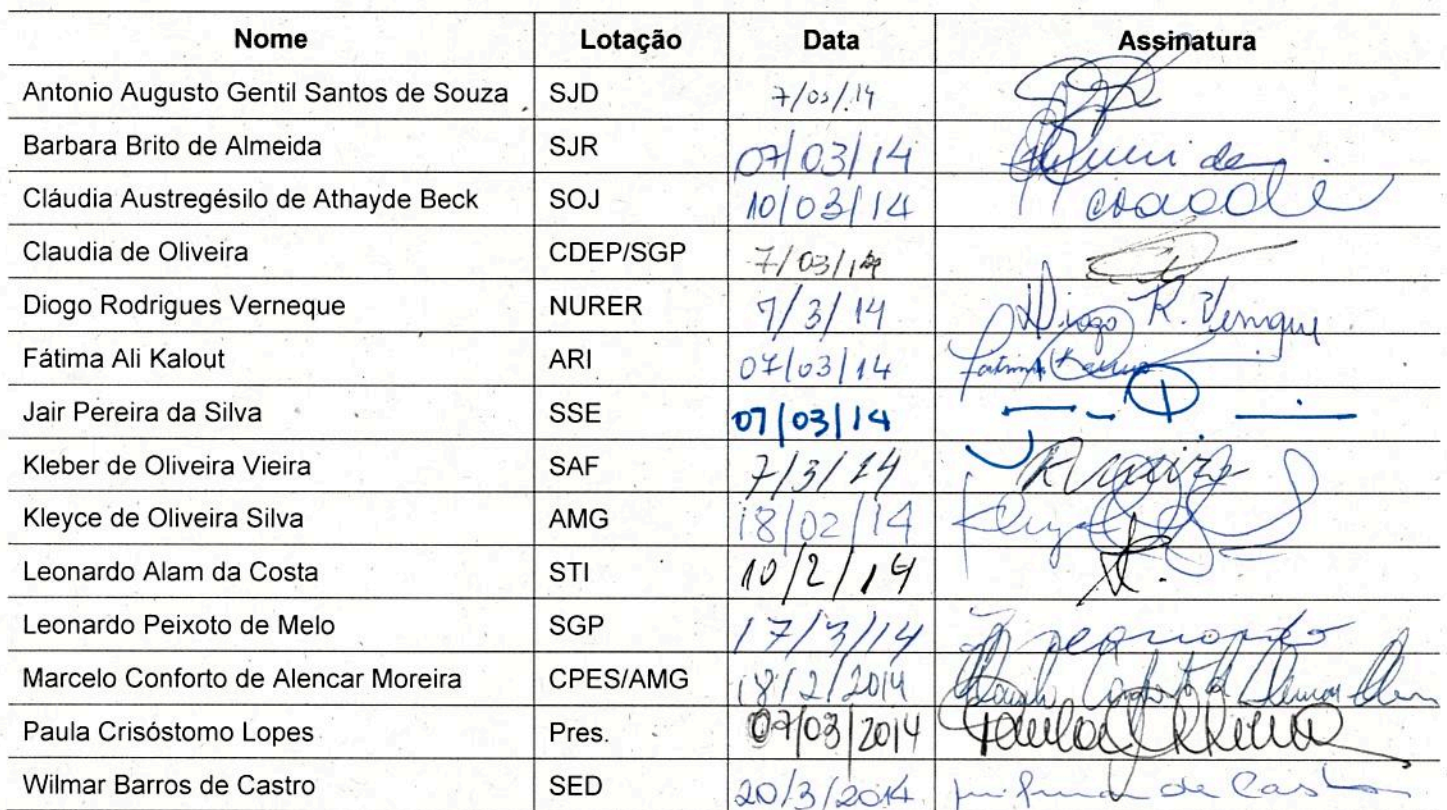 Nome Lotação Data Assinatura
Antonio Augusto Gentil Santos de Souza SJD 7/03/14
Barbara Brito de Almeida SJR 07/03/14
Cláudia Austregésilo de Athayde Beck SOJ 10/03/14
Claudia de Oliveira CDEP/SGP 7/03/14
Diogo Rodrigues Verneque NURER 7/3/14 Diogo R. Verneque
Fátima Ali Kalout ARI 07/03/14
Jair Pereira da Silva SSE 07/03/14
Kleber de Oliveira Vieira SAF 7/3/14
Kleyce de Oliveira Silva AMG 18/02/14
Leonardo Alam da Costa STI 10/2/14
Leonardo Peixoto de Melo SGP 17/3/14
Marcelo Conforto de Alencar Moreira CPES/AMG 18/2/2014
Paula Crisóstomo Lopes Pres. 07/03/2014
Wilmar Barros de Castro SED 20/3/2014 de Castro